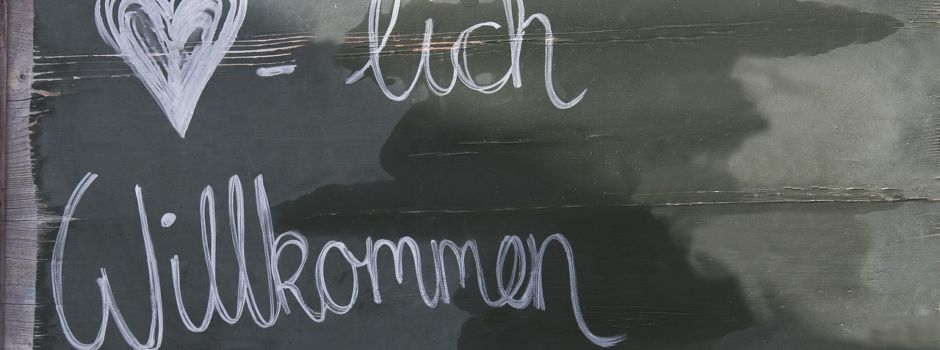 - lich
Willkommen